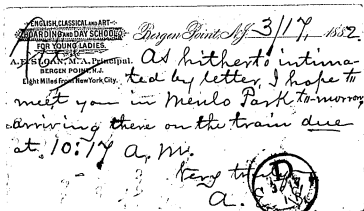 ENGLISH, CLASSICAL AND ART
BOARDING AND DAY SCHOOL
FOR YOUNG LADIES.
A. E. SLOAN, M.A., Principal.
BERGEN POINT, N.J.
Eight Miles From New York City.
Bergen Point, N.J. 3/17, 1882.
As hitherto intima-
ted by letter, I hope to
meet you in Menlo Park to-morrow
arriving there on the train due
at 10:17 a.m.
Very
A.